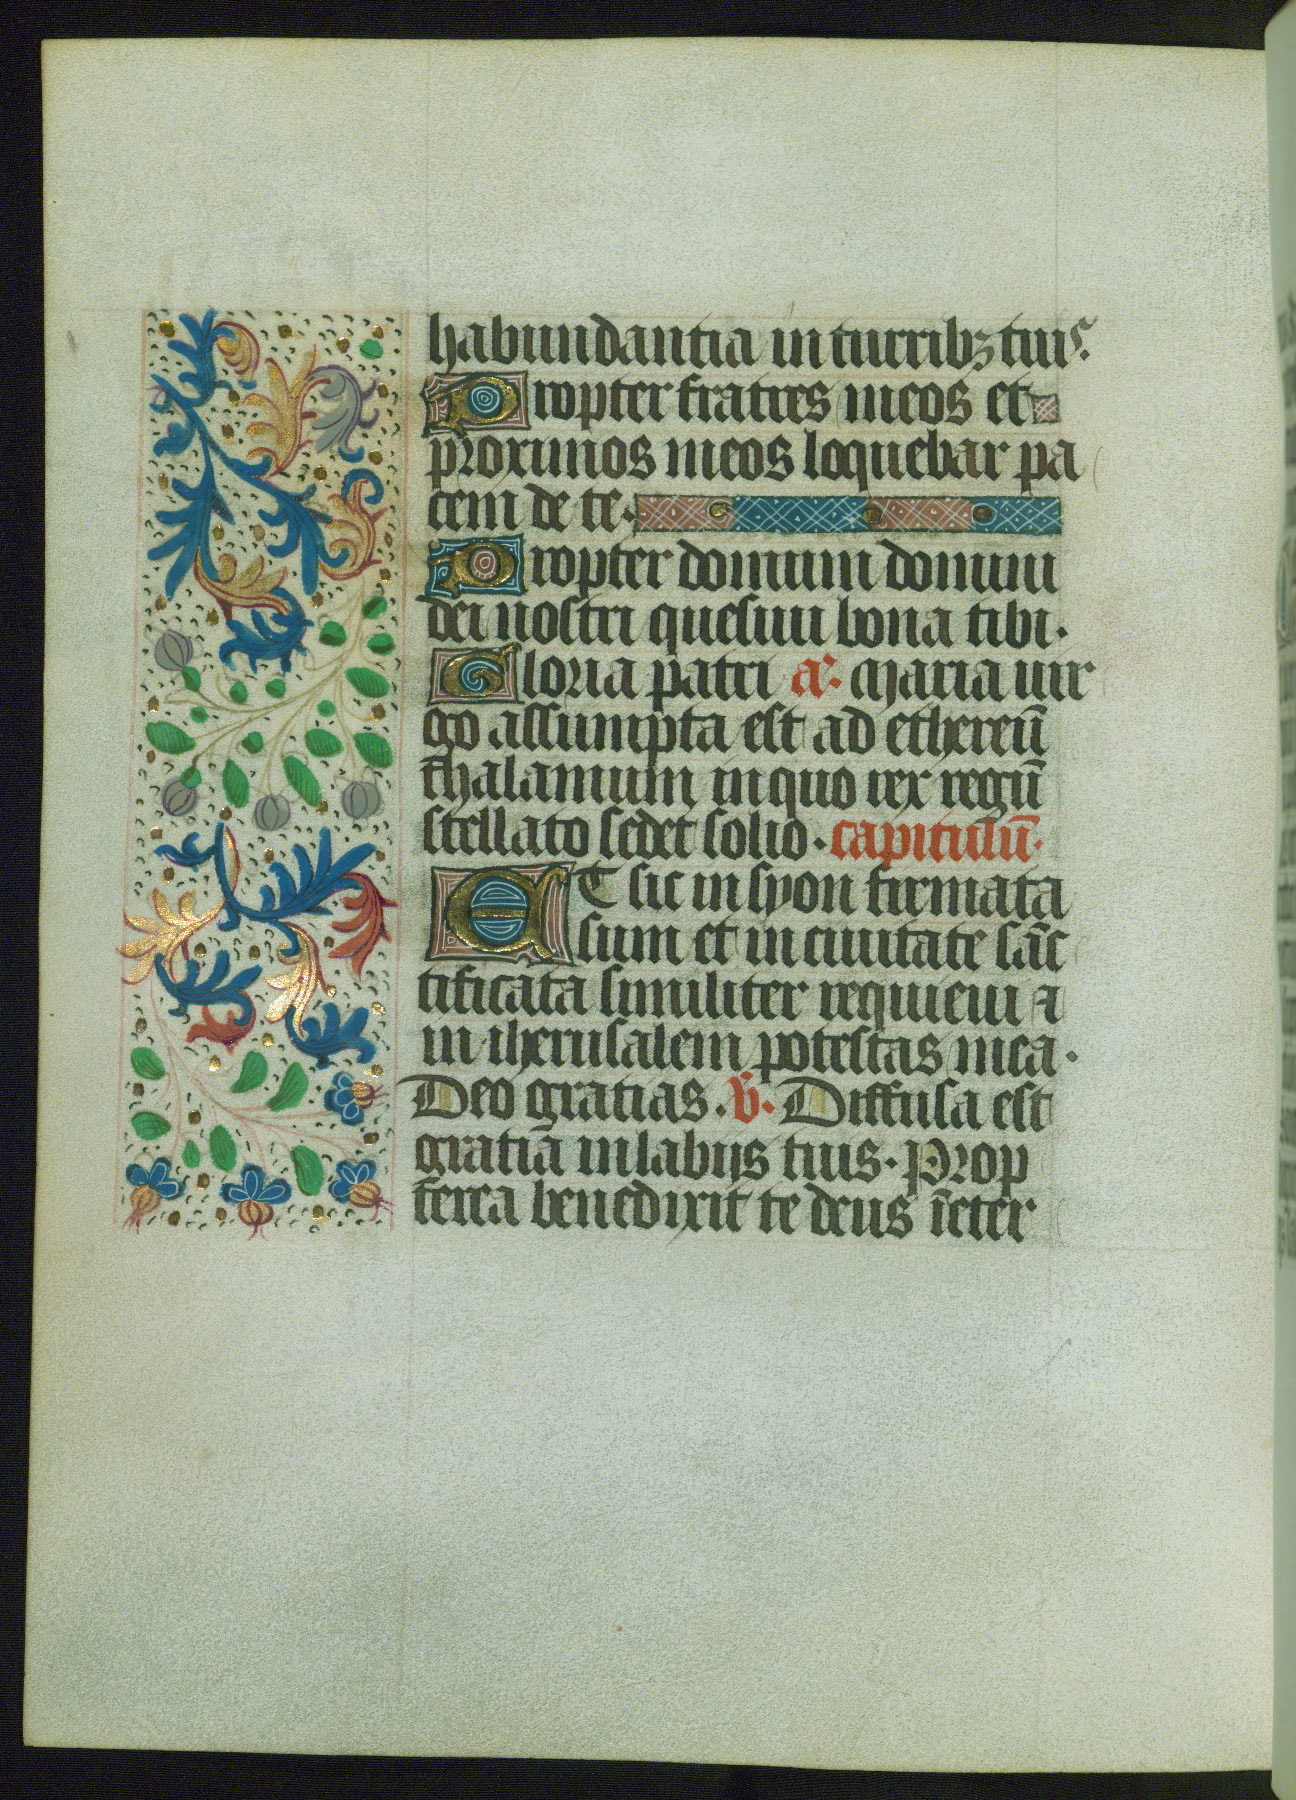 habundantia in turribꝫ tuis.
Propter fratres meos et
proximos meos loquebar pa
cem de te.
Propter domum domini
dei nostri quesiui bona tibi.
Gloria patri a᷒: Maria uir
go assumpta est ad ethereū
thalamum in quo rex regū
stellato sedet solio. capitulū.
ET sic in syon firmata
sum et in ciuitate sāc
tificata similiter requieui ⁊
in iherusalem potestas mea.
Deo gratias. v̄. Diffusa est
gratia in labijs tuis. Prop
terea benedixit te deus īeter